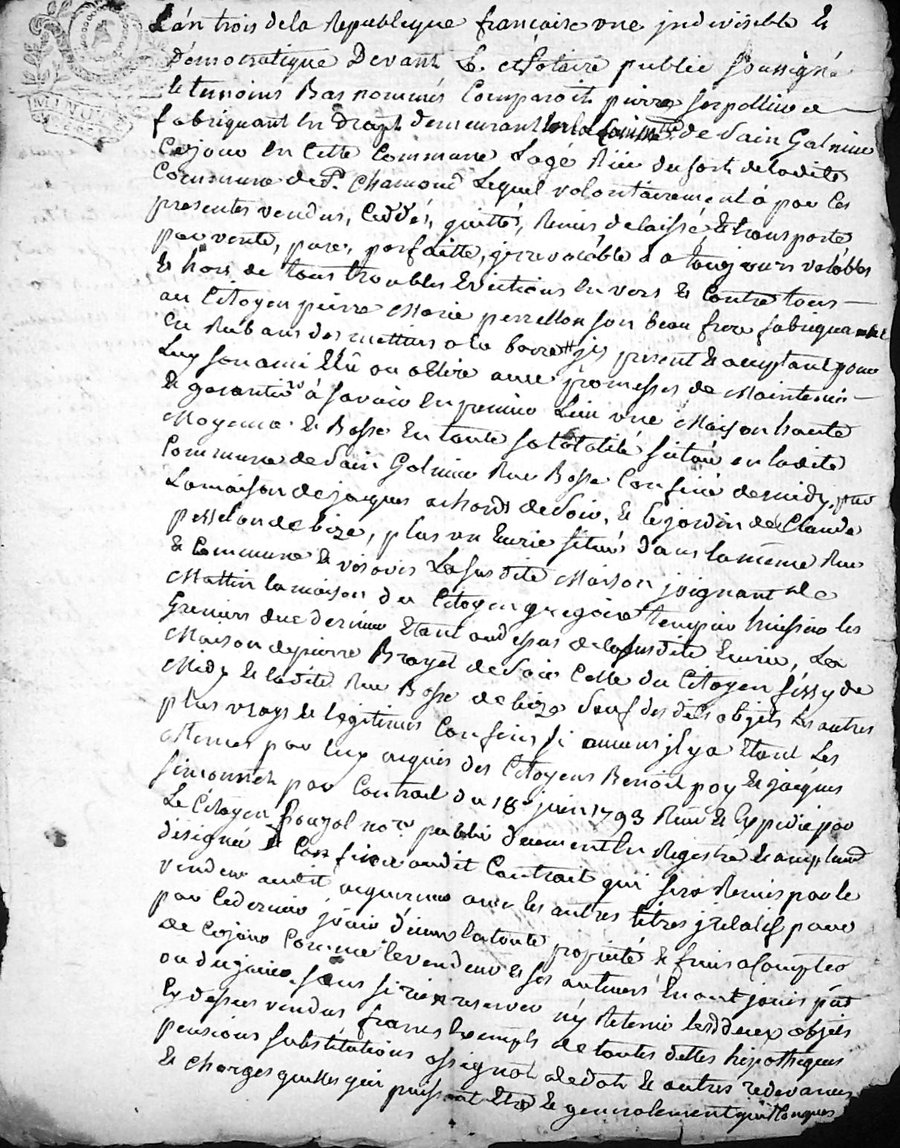 L'an trois de la Republique francaise une indivisible &
Démocratique Devant Le Notaire public soussigné
& temoins Bas nommés Comparoit pierre
fabriquant En Draps demeurant de Sain Galmier
Cejour en Cette Commune Logé Rüe du fort de ladite
Commune de St. Chamond Lequel volontairement à par Ces
presentes vendus, Ceddé, quitté, Remis delaissé & transporté
par vente, pure, parfaitte, irrevocable & a toujours valables
& hors de tous troubles Evictions Envers & Contre tous
au Citoyen pierre Marie perrellon son beau frere fabriquant
En Rubans des mettiers a la barre # icy present & acceptant pour
Luy son ami Elû ou a Elire avec promesses de Maintenir
& garantir à savoir En premier Lieu une Maison haute
Moyenne & Basse En toute sa totalité située en ladite
Commune de Sain Galmier Rue Basse Confiné de midy, par
La maison de jacques achard de soir, & le jardin de Claude
pesselon de bize, plus un Ecurie située dans la même Rue
& Commune & vis avis La susdite Maison joignant de
Mattin la maison du Citoyen gregoire les
Greniers de dernier Etant au dessus de la susdite Ecurie, La
Maison de pierre Brayet de soir Celle du Citoyen fessy de
Midy & ladite Rue Basse de bize Sauf des dits objets les autres
plus vrays & legitimes Confins si aucuns il y a Etant Les
par luy acquis des Citoyens Benoit poy & jacques
simonnet par Contrat du 18e juin 1793 Recu & Expedié par
Le Citoyen fouzol nore public duement En Registré & amplement
désigné & Confiné audit Contrat qui sera Remis par le
vendeur audit acquereur avec les autres titres y relatifs pour
par ce dernier jouir d'iceux la toute propriété & fruis a Compter
de Cejour Comme le vendeur & ses auteurs En ont jouis pû
ou du jouir sans si rien reserver n'y Retenir lesd deux objets
Cy dessus vendus francs Exempts de toutes dettes hipotheques
pensions substitutions assignat de dot & autres redevances
& Charges quelles qui puissent Etre & generalement